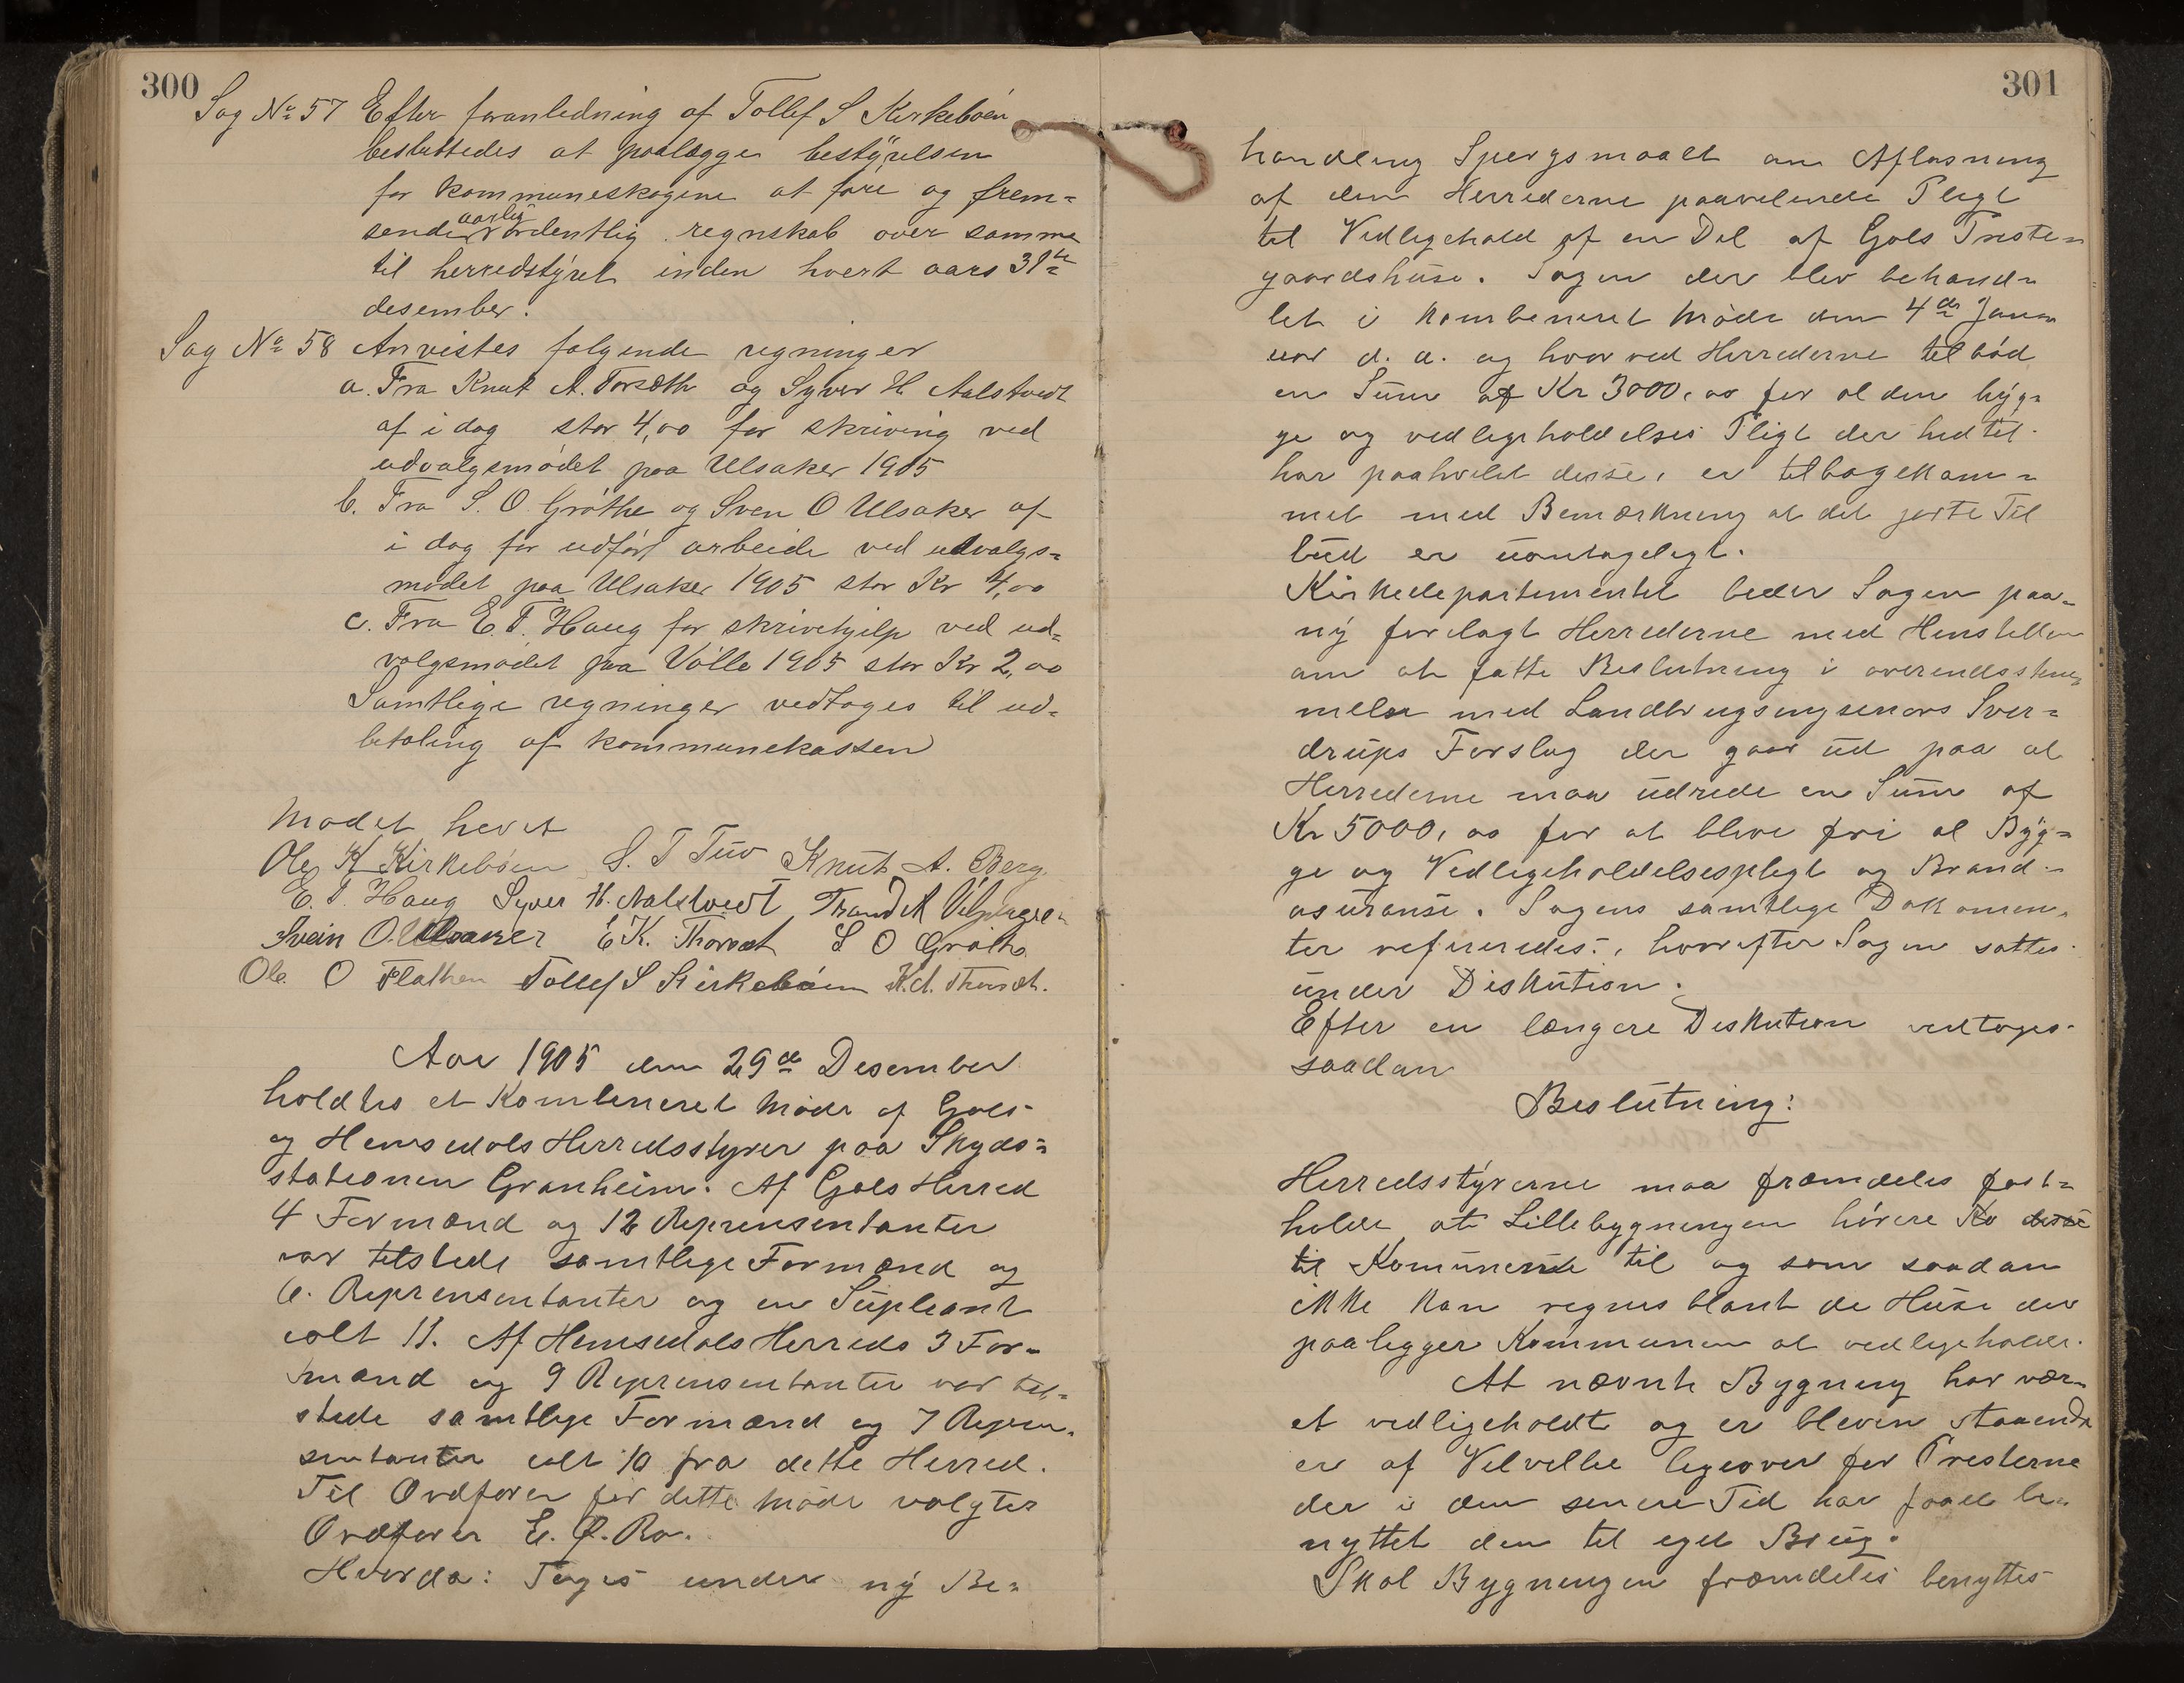 300
Sag No 57 Efter foranledning af Tollef S Kirkebøen
besluttedes at paalægge bestyrelsen
for kommuneskogene at føre og frem=
sende aarlig ordentlig regnskab over samme
til herredstyret inden hvert aars 31te
desember.
Sag No 58 Anvistes følgende regninger
a. Fra Knut A. Torsæth og Syver H. Aalstvedt
af i dag stor 4,00 for skriving ved
udvalgsmødet paa Ulsaker 1905
b. Fra S. O. Grøthe og Sven O Ulsaker af
i dag for udført arbeide ved udvalgs=
mødet paa Ulsaker 1905 stor Kr 4,00
c. Fra E. T. Haug for skrivehjelp ved ud=
valgsmødet paa Vølle 1905 stor Kr 2,00
Samtlige regninger vedtoges til ud=
betaling af kommunekassen
Mødet hevet
Ole K Kirkebøen S. T Tuv Knut A. Berg
E. T. Haug Syver H. Aalstvedt Trond A
Svein O. Ulsaker E K. Thorset S O Grøthe
Ole O Flathen Tollef S Kirkebøen K. A. Thorset.
Aar 1905 den 29de Desember
holdtes et Kombineret Møde af Gols
og Hemsedals Herredsstyrer paa Skyds=
stationen Granheim. Af Gols Herred
4 Formænd og 12 Reprensentanter
var tilstede samtlige Formænd og
6. Reprensentanter og en Supleant
ialt 11. Af Hemsedals Herreds 3 For=
mænd og 9 Reprensentanter var til=
stede samtlige Formænd og 7 Repren=
sentanter ialt 10 fra dette Herred.
Til Ordfører for dette Møde valgtes
Ordfører E. O. Ro.
Hvorda: Toges under ny Be=
301
handling Spørgsmaalet om Afløsning
af den Herrederne paavelende Pligt
til Vedligehold af en Del af Gols Preste=
gaardshuse. Sagen der blev behand=
let i Kombineret Møde den 4de Janu=
uar d. a. og hvorved Herrederne tilbød
en Sum af Kr 3000,00 for al den byg=
ge og vedligeholdelses Pligt der hidtil
har paahvilet disse, er tilbagekom=
met med Bemærkning at det gjorte Til
bud er uantageligt.
Kirkedepartementet beder Sagen paa=
ny forelagt Herrederne med Henstillen
om at fatte Beslutning i overensstem=
melse med Landbrugsingeniørs Sver=
drups Forslag der gaar ud paa at
Herrederne maa udrede en Sum af
Kr 5000,00 for at blive fri al Byg=
ge og Vedligeholdelsespligt og Brand=
asuranse. Sagens samtlige Dokumen=
ter refereredes, hvorefter Sagen sattes
under Diskution.
Efter en længere Diskution vedtoges
saadan
Beslutning:
Herredsstyrerne maa fremdeles fast=
holde at Lillebygningen hørere Ko disse
til Komunerne til og som saadan
ikke kan regnes blant de Huse der
paaligger Kommunen at vedligeholde.
At nævnte Bygning har vær=
et vedligeholdt og er bleven staaende
er af Velvillie ligeover for Presterne
der i den senere Tid har faaet be=
nyttet den til eget Brug.
Skal Bygningen fremdeles benyttes